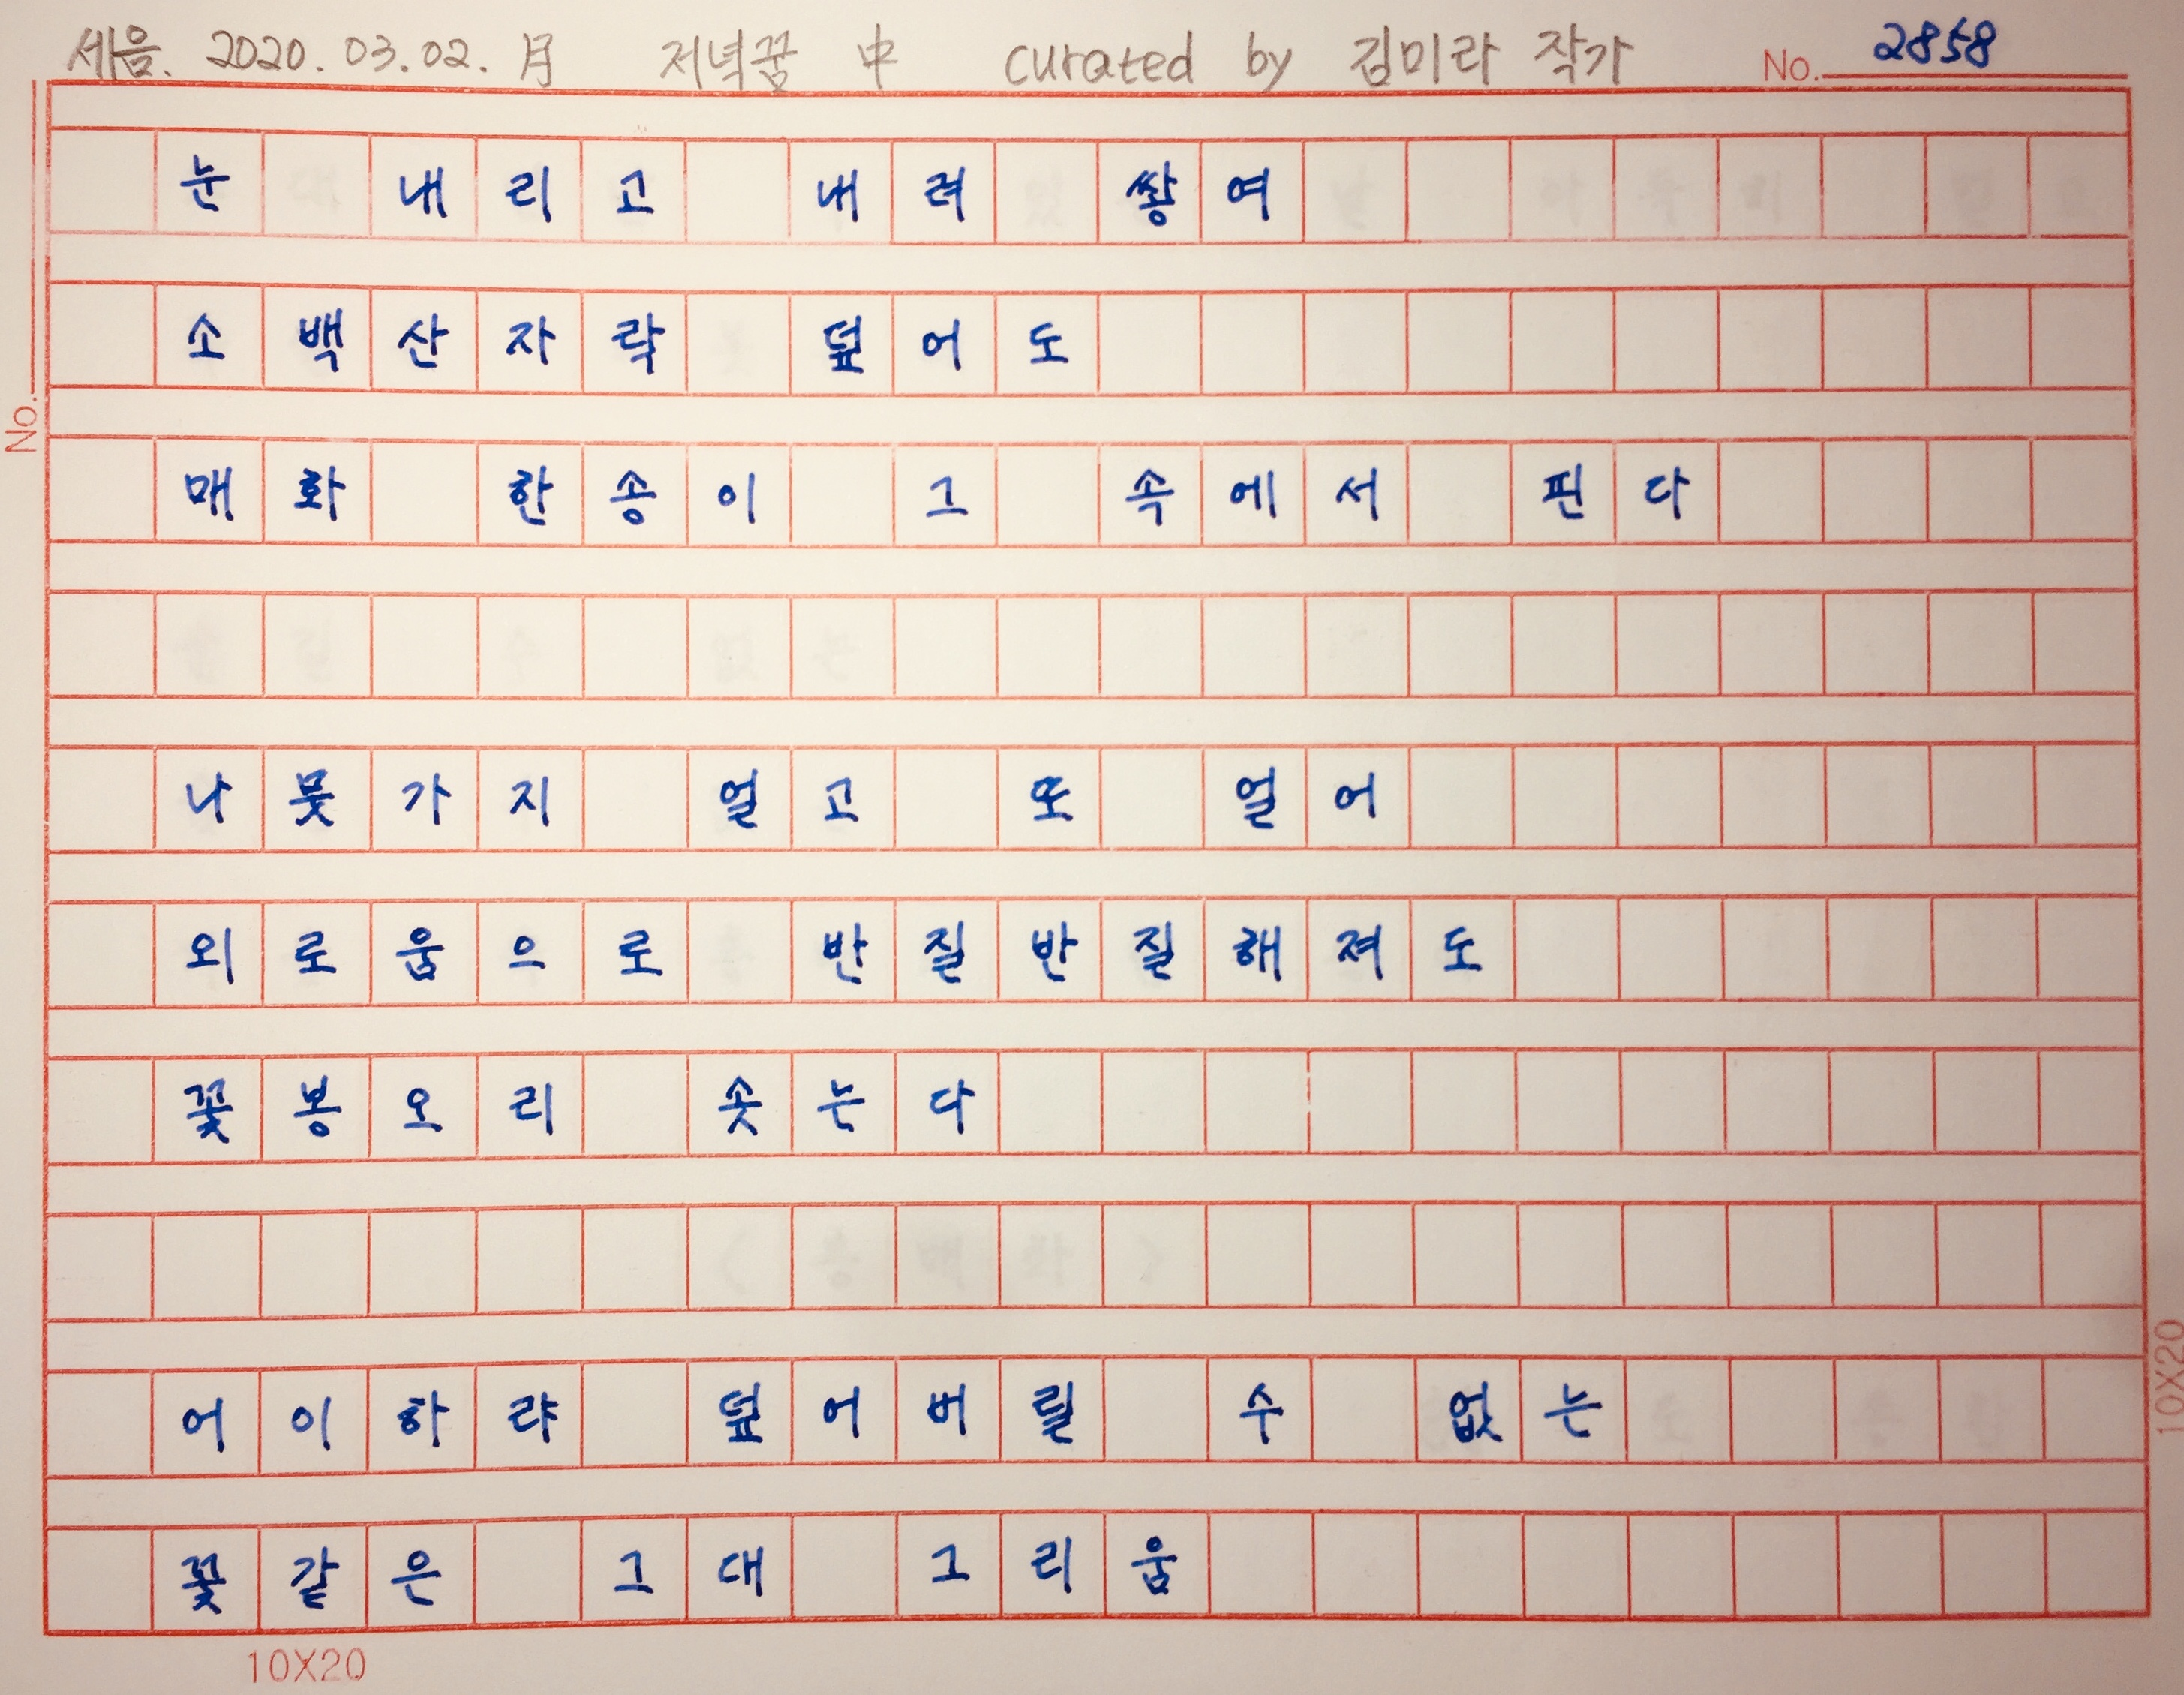 세음. 2020.03.02. 月 저녁꿈 中 curated by 김미라 작가 No. 2858
눈 내리고 내려 쌓여
소백산자락 덮어도
매화 한송이 그 속에서 핀다
No.
나뭇가지 얼고 또 얼어
외로움으로 반질반질해져도
꽃봉오리 솟는다
어이하랴 덮어버릴 수 없는
꽃같은 그대 그리움
10X20
10X20